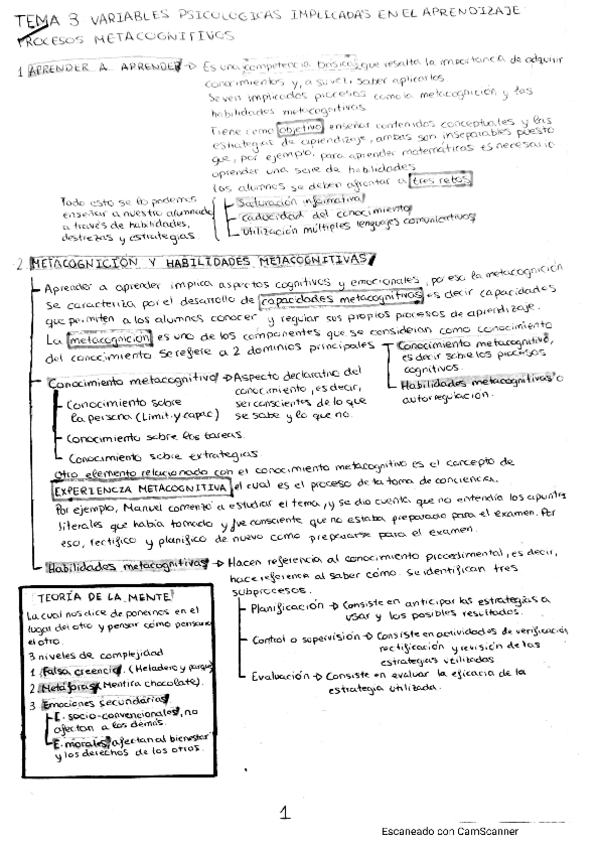 TEMA 3 VARIABLES PSICOLOGICAS IMPLICADAS EN EL APRENDIZAJE
PROCESOS METACOGNITIVOS
1 APRENDER A APRENDER → Es una competencia básica que resalta la importancia de adquirir
conocimientos y, a su vez, saber aplicarlos.
Se ven implicados procesos como la metacognición y las
habilidades metacognitivas
Tiene como objetivo enseñar contenidos conceptuales y las
estrategias de aprendizaje, ambas son inseparables puesto
que, por ejemplo, para aprender matemáticas es necesario
aprender una serie de habilidades
Los alumnos se deben afrontar a tres retos
Todo esto se lo podemos
enseñar a nuestro alumnado
a través de habilidades,
destrezas y estrategias
Saturación informativa
Caducidad del conocimiento
Utilización múltiples lenguajes comunicativos
2. METACOGNICIÓN Y HABILIDADES METACOGNITIVAS
Aprender a aprender implica aspectos cognitivos y emocionales, por eso la metacognición
se caracteriza por el desarrollo de capacidades metacognitivas es decir capacidades
que permiten a los alumnos conocer y regular sus propios procesos de aprendizaje.
La metacognición es uno de los componentes que se consideran como conocimiento
del conocimiento se refiere a 2 dominios principales
Conocimiento metacognitivo,
es decir sobre los procesos
cognitivos.
Habilidades metacognitivas o
autorregulación.
Conocimiento metacognitivo → Aspecto declarativo del
conocimiento, es decir,
ser conscientes de lo que
se sabe y lo que no.
Conocimiento sobre
la persona (Limit. y capac)
Conocimiento sobre las tareas.
Conocimiento sobre estrategias
Otro elemento relacionado con el conocimiento metacognitivo es el concepto de
EXPERIENCIA METACOGNITIVA, el cual es el proceso de la toma de conciencia.
Por ejemplo, Manuel comenzó a estudiar el tema, y se dio cuenta que no entendía los apuntes
literales que había tomado y fue consciente que no estaba preparado para el examen. Por
eso, rectificó y planificó de nuevo como prepararse para el examen.
Habilidades metacognitivas → Hacen referencia al conocimiento procedimental, es decir,
hace referencia al saber cómo. Se identifican tres
subprocesos.
Planificación → Consiste en anticipar las estrategias a
usar y los posibles resultados.
Control o supervisión → Consiste en actividades de verificación,
rectificación y revisión de las
estrategias utilizadas
Evaluación → Consiste en evaluar la eficacia de la
estrategia utilizada.
TEORÍA DE LA MENTE
La cual nos dice de ponernos en el
lugar del otro y pensar cómo pensaría
el otro.
3 niveles de complejidad
1 Falsa creencia. (Heladero y parque)
2 Metáforas (Mentira chocolate).
3 Emociones secundarias
E. socio-convencionales, no
afectan a los demás.
E. morales, afectan al bienestar
y los derechos de los otros.
1
Escaneado con CamScanner